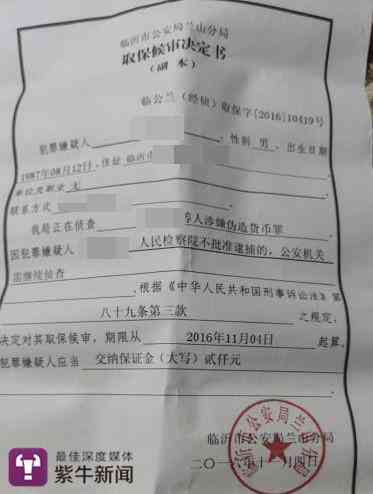 临沂市公安局兰山分局
取保候审决定书
(副本)
临公兰(经侦)取保字[2016]10419号
犯罪嫌疑人 ,性别 男,出生日期
1987年08月12日,住址 临沂市
单位及职业 无
联系方式
我局正在侦查 等人涉嫌伪造货币罪
因犯罪嫌疑人 人民检察院不批准逮捕的,公安机关
需继续侦查
,根据《中华人民共和国刑事诉讼法》第
八十九条第三款 之规定,
决定对其取保候审,期限从 2016年11月04日 起算。
犯罪嫌疑人应当 交纳保证金(大写)贰仟元
临沂市公安局兰山分局
二〇一六年十一月四日
临沂市公安局兰山分局
最佳深度媒体
紫牛新闻